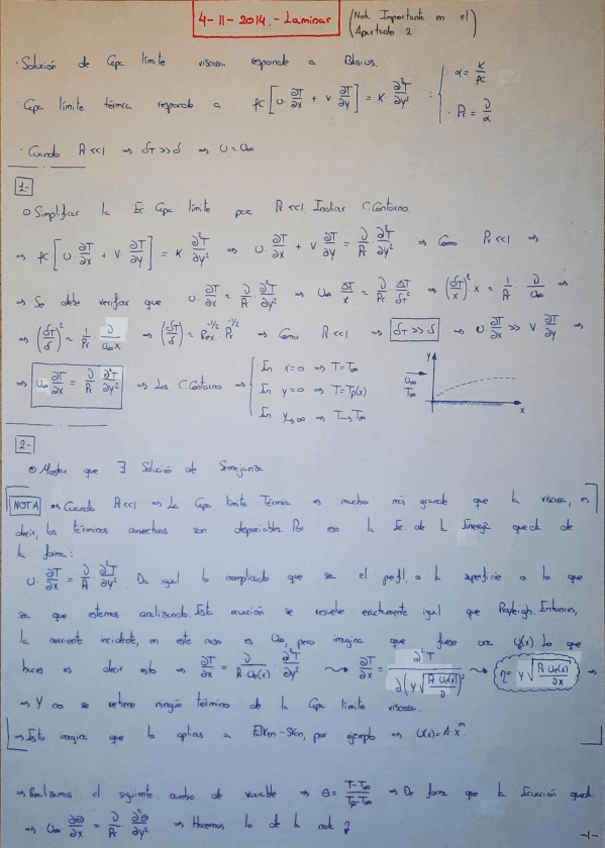 4-11-2014.- Laminar (Nota Importante en el Apartado 2)
· Solución de Capa límite viscosa responde a Blasius.
· Capa límite térmica responde a ρc[u·∂T/∂x + v ∂T/∂y] = K·∂²T/∂y² : { · α = K/ρc · Pr = ν/α
· Cuando Pr<<1 ⇒ δT >> δ ⇒ u ≈ u∞
1-
○ Simplificar la Ec. Capa límite para Pr<<1. Indicar C.Contorno.
⇒ ρc·[u·∂T/∂x + v ∂T/∂y] = K ∂²T/∂y² ⇒ u·∂T/∂x + v ∂T/∂y = ν/Pr · ∂²T/∂y² ⇒ Como Pr<<1 ⇒
⇒ Se debe verificar que u·∂T/∂x ~ ν/Pr ∂²T/∂y² ⇒ u∞ ΔT/x ~ ν/Pr · ΔT/δT² ⇒ (δT/x)² x ~ 1/Pr · ν/u∞ ⇒
⇒ (δT/δ)² ~ 1/Pr ν/u∞x ⇒ (δT/δ) ~ Rex^-1/2 · Pr^-1/2 ⇒ Como Pr<<1 ⇒ δT >> δ ⇒ u ∂T/∂x >> v ∂T/∂y ⇒
⇒ u∞ ∂T/∂x = ν/Pr ∂²T/∂y² ⇒ Las C.Contorno ⇒ { En x=0 ⇒ T=T∞
En y=0 ⇒ T=Tp(x)
En y→∞ ⇒ T→T∞
y
u∞
T∞
x
2-
○ Mostrar que ∃ Solución de Semejanza
NOTA ⇒ Cuando Pr<<1 ⇒ La Capa límite Térmica es mucho más grande que la viscosa, es
decir, los términos convectivos son despreciables. Por eso la Ec. de la Energía queda de
la forma:
u·∂T/∂x = ν/Pr · ∂²T/∂y². Da igual lo complicado que sea el perfil, o la superficie o lo que
sea que estemos analizando. Esta ecuación se resuelve exactamente igual que Rayleigh. Entonces,
la corriente incidente, en este caso es U∞, pero imagina que fuese una U∞(x) lo que
haces es decir esto ⇒ ∂T/∂x = ν/(Pr U∞(x)) · ∂²T/∂y² ⇝ ∂T/∂x = ∂²T/∂(y√(Pr·U∞(x)/ν))² ⇝ η = y√(Pr·U∞(x)/νx) ⇒
⇒ Y no se retiene ningún término de la Capa límite viscosa.
⇒ Esto imagina que lo aplicas a Falkner-Skan, por ejemplo ⇒ U(x)=A·x^m
⇒ Realizamos el siguiente cambio de variable ⇒ θ = (T-T∞)/(Tp-T∞) ⇒ De forma que la Ecuación queda:
⇒ u∞ ∂θ/∂x = ν/Pr ∂²θ/∂y² ⇒ Hacemos lo de la nota
-1-